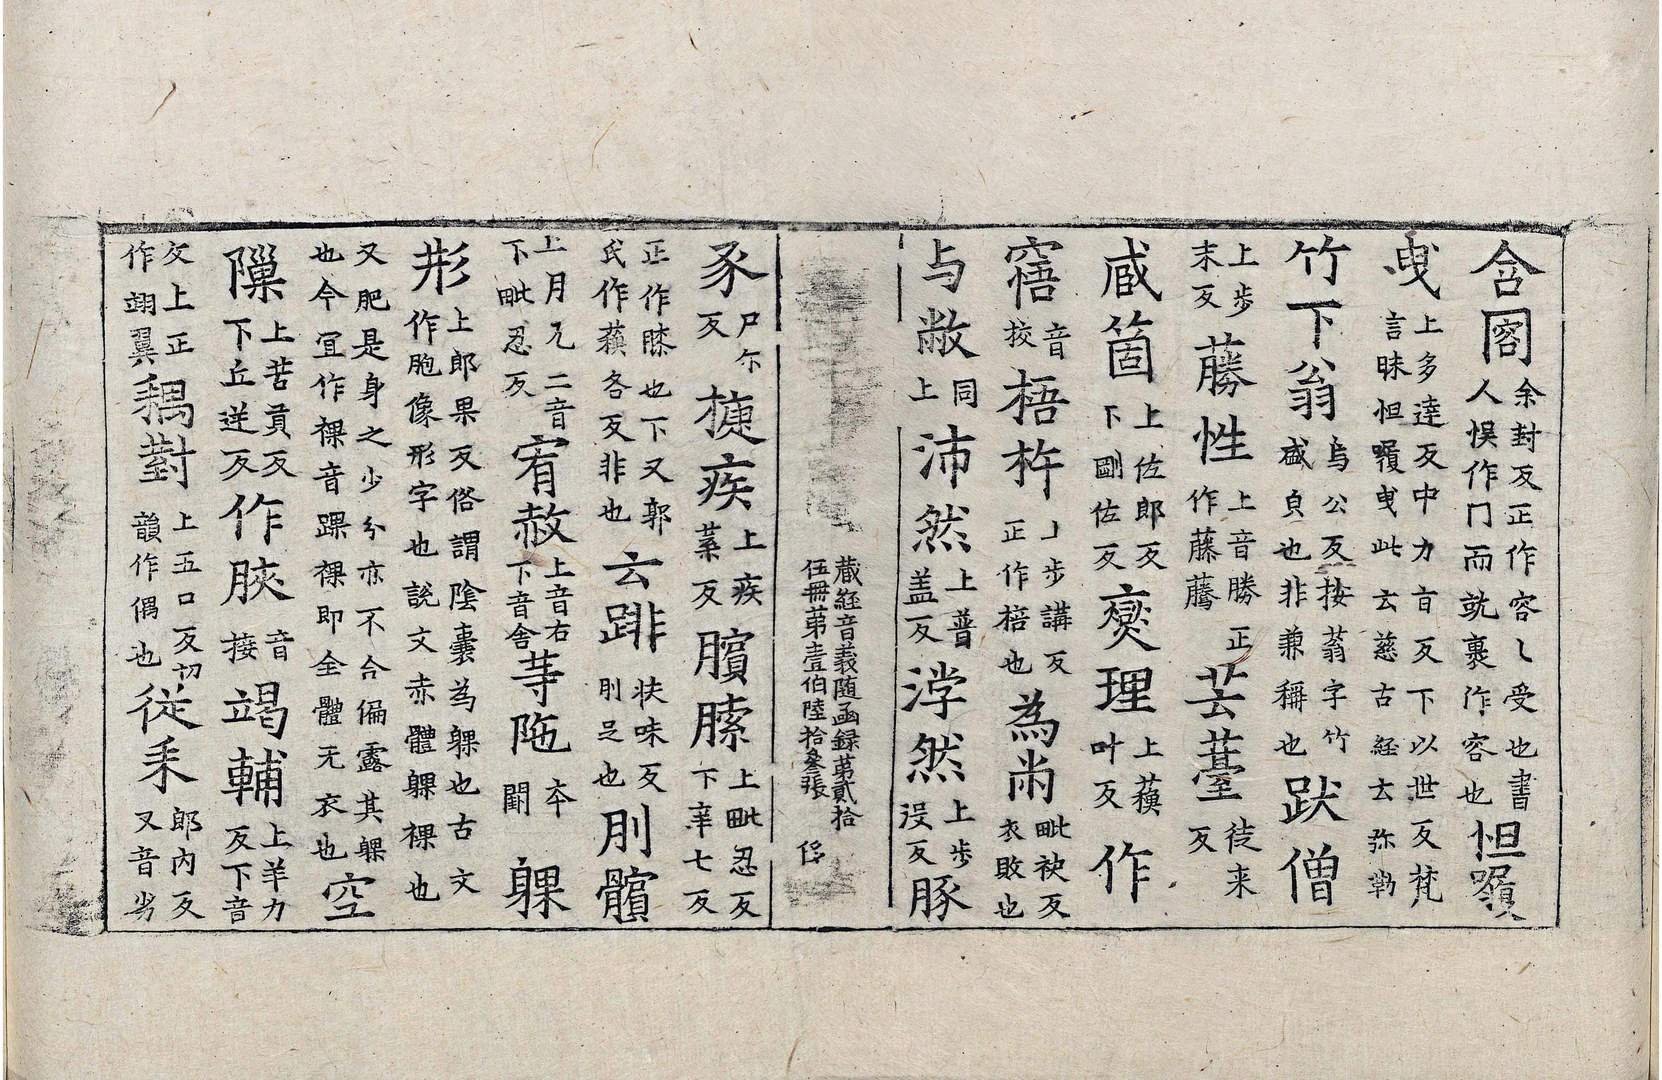 含𡇂余封反正作容〻受也書人悮作門而就裹作容也怛𡃤
曳上多達反中力盲反下以世反梵言昧怛囕曳此云慈古経云弥勒
竹下翁烏公反按蓊字竹盛皃也非兼稱也跋僧
上歩末反藤性上音勝正作藤騰芸薹徒来反
咸箇上佐郎反下剛佐反爕理上蘓叶反作
窹音挍梧杵上歩講反正作棓也為㡀毗袂反衣敗也
与敝同上沛然上普盖反浡然上歩没反豚
蔵経音義随函録苐貳拾伍冊苐壹伯陸拾叄張
豕尸尓反㨗疾上疾葉反臏膆上毗忍反下辛七反
正作膝也下又郭氏作蘓各反非也云䠊扶味反刖足也刖髕
上月兀二音下毗忍反宥赦上音右下音舍䒭陁本闍躶
形上郎果反俗謂陰囊為躶也古文作胞像形字也説文赤體躶裸也
又肥是身之少分亦不合偏露其躶也今冝作裸音踝裸即全體无衣也空
隟上苦貢反下丘逆反作腋音接竭輔上羊力反下音
父上正作翊翼耦對上五口反切韻作偶也従耒郎内反又音劣